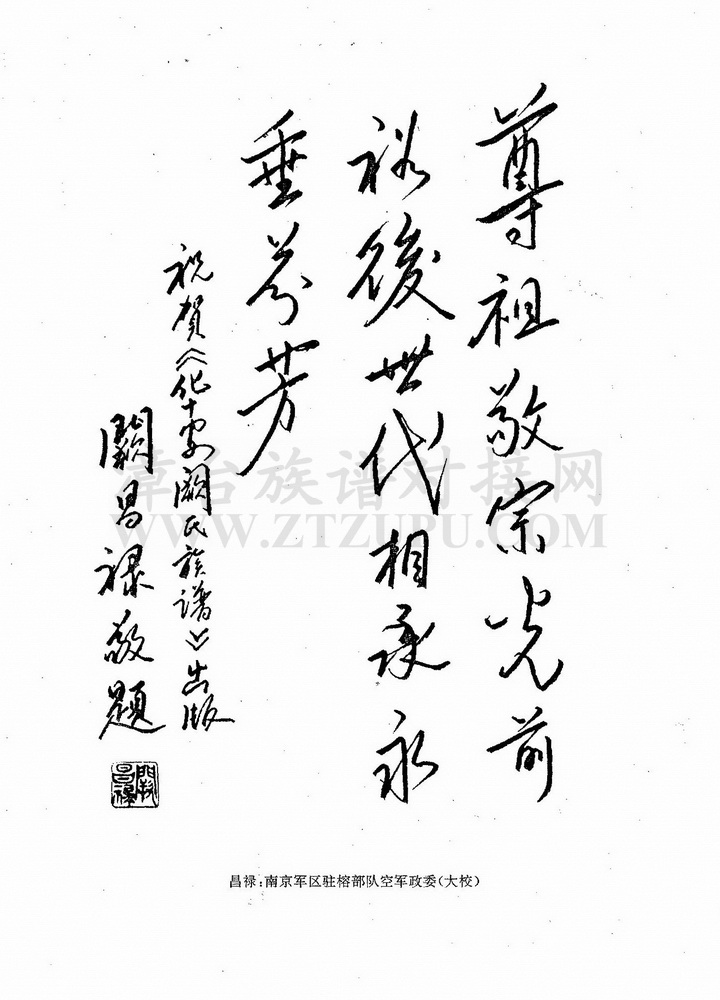 尊祖敬宗光前
裕後世代相承永
垂芬芳
祝賀《化十公阙氏族谱》出版
闕昌禄敬題
闕昌禄
昌禄：南京军区驻榕部队空军政委（大校）
章台族谱对接网
WWW.ZTZUPU.COM